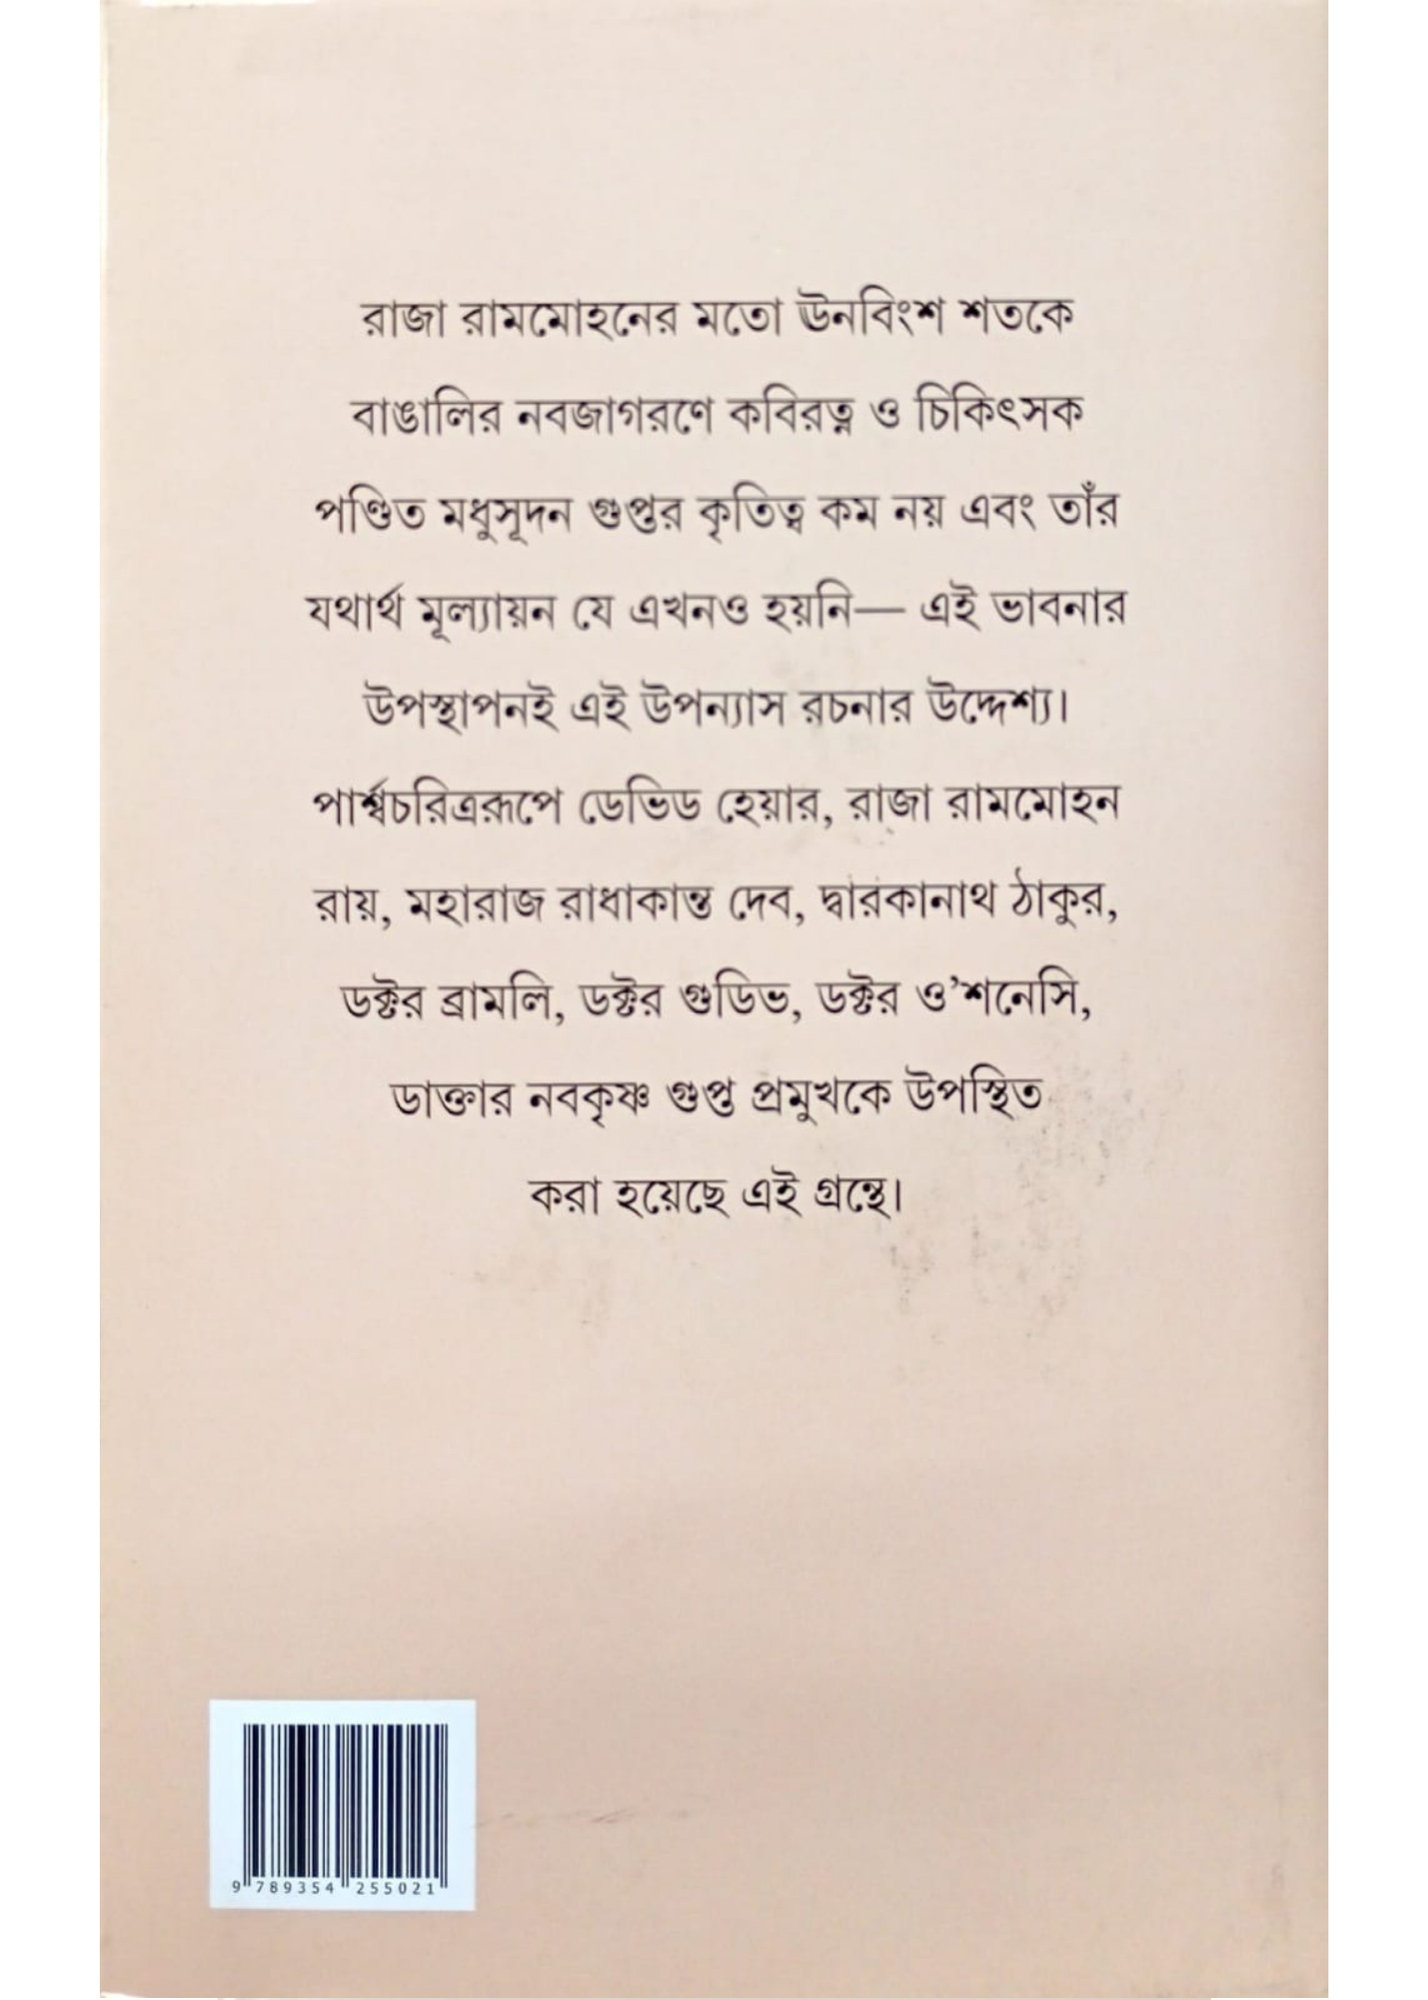 রাজা রামমোহনের মতো ঊনবিংশ শতকে
বাঙালির নবজাগরণে কবিরত্ন ও চিকিৎসক
পণ্ডিত মধুসূদন গুপ্তর কৃতিত্ব কম নয় এবং তাঁর
যথার্থ মূল্যায়ন যে এখনও হয়নি— এই ভাবনার
উপস্থাপনই এই উপন্যাস রচনার উদ্দেশ্য।
পার্শ্বচরিত্ররূপে ডেভিড হেয়ার, রাজা রামমোহন
রায়, মহারাজ রাধাকান্ত দেব, দ্বারকানাথ ঠাকুর,
ডক্টর ব্রামলি, ডক্টর গুডিভ, ডক্টর ও'শনেসি,
ডাক্তার নবকৃষ্ণ গুপ্ত প্রমুখকে উপস্থিত
করা হয়েছে এই গ্রন্থে।
9 789354 255021